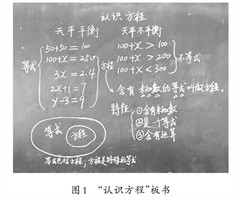 认识方程
天平平衡
天平不平衡
50+50=100
100+x=250
3x=2.4
2x+1=7
y-3=9
等式
方程
100+x>100
100+x>200
100+x<300
不等式
含有未知数的等式叫做方程。
特征
①含有未知数
②是一个等式
③含有运算
等式
方程
等式包括方程,方程是特殊的等式
图1 “认识方程”板书